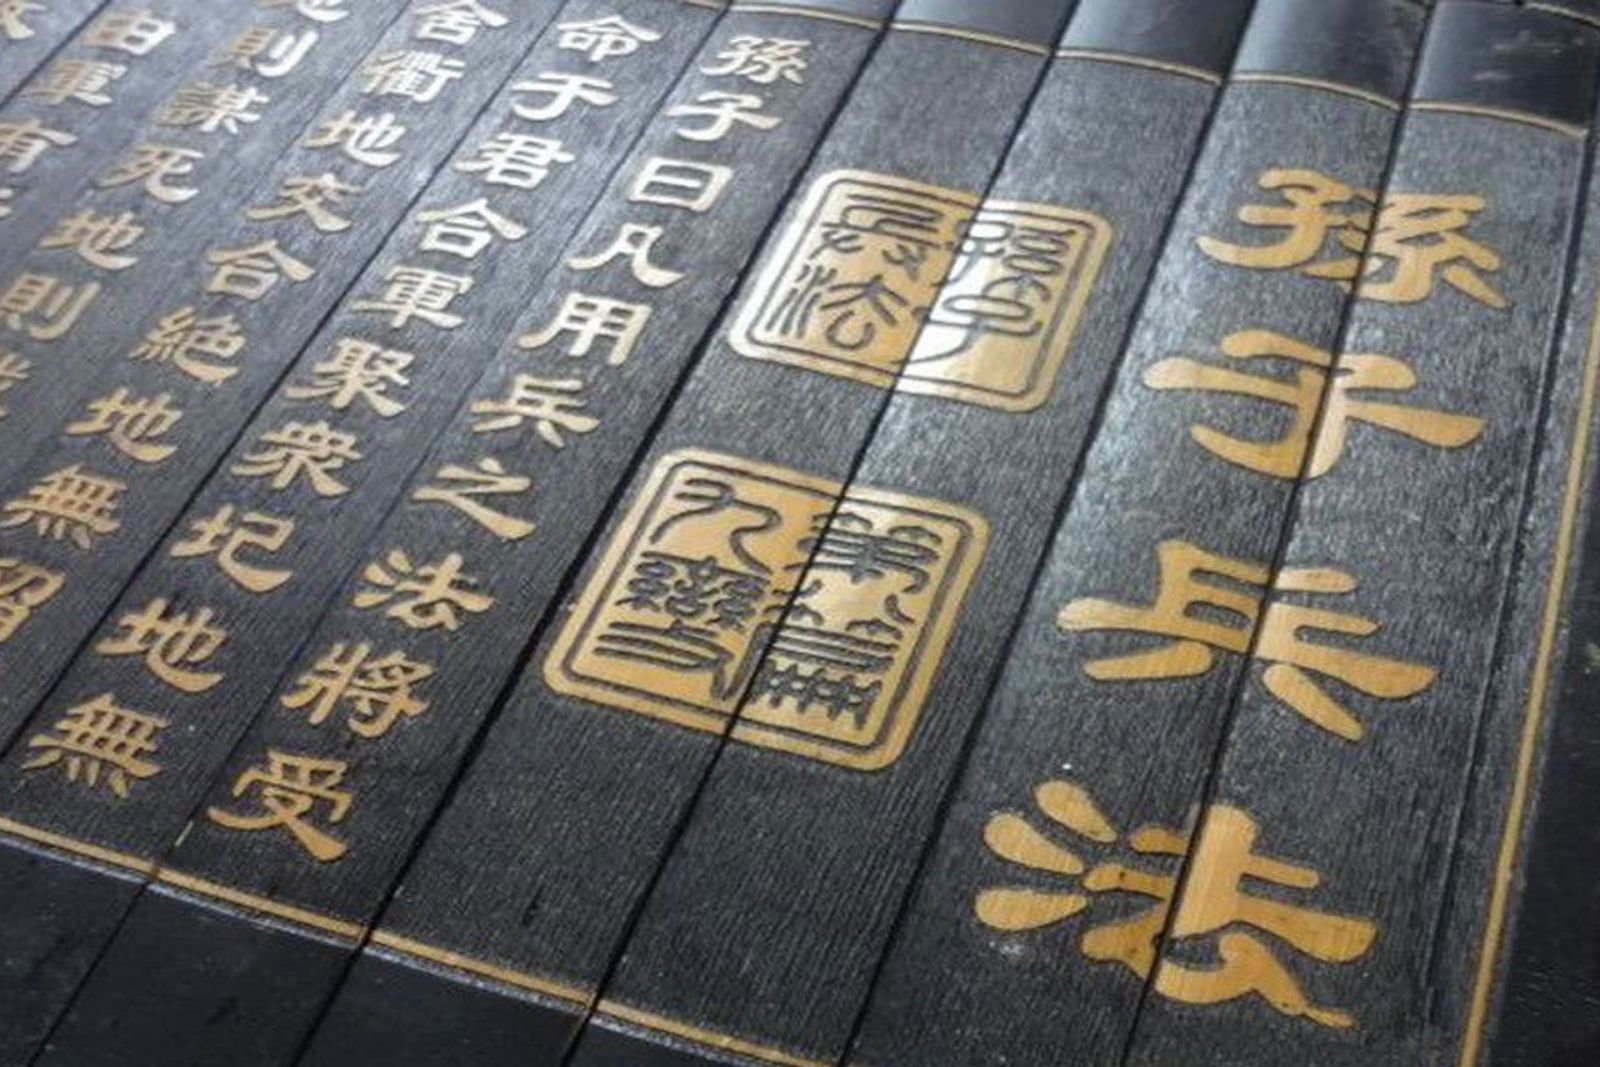 孫子兵法
孫子
兵法
九變
孫子曰凡用兵之法將受
命于君合軍聚衆圮地無
舍衢地交合絶地無留
地則謀死地則
由軍有